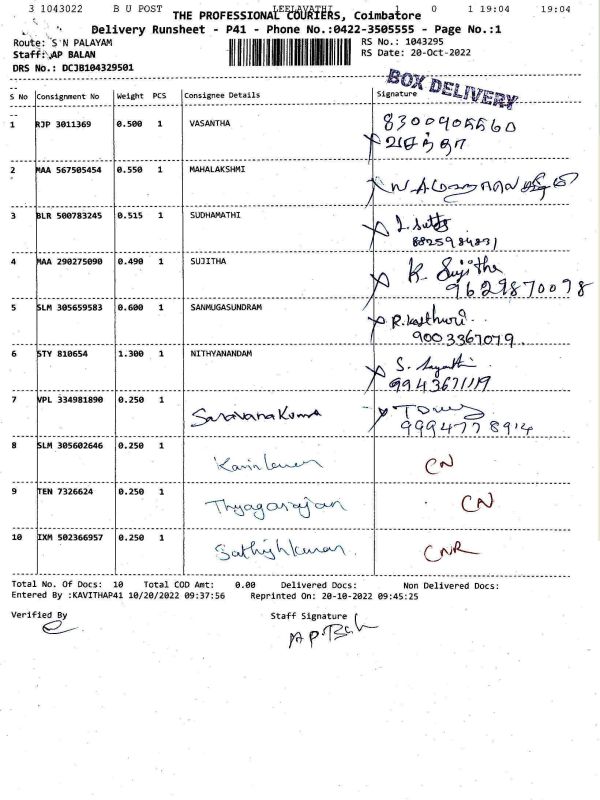 3 1043022 B U POST LEELAVATHI 1 0 1 19:04 19:04
THE PROFESSIONAL COURIERS, Coimbatore
Delivery Runsheet - P41 - Phone No.:0422-3505555 - Page No.:1
Route: S N PALAYAM RS No.: 1043295
Staff: AP BALAN RS Date: 20-Oct-2022
DRS No.: DCJB104329501
BOX DELIVERY
S No Consignment No Weight PCS Consignee Details Signature
1 RJP 3011369 0.500 1 VASANTHA 8300905560
வசந்தா
2 MAA 567505454 0.550 1 MAHALAKSHMI
3 BLR 500783245 0.515 1 SUDHAMATHI
4 MAA 290275090 0.490 1 SUJITHA K. Sujitha
9629870098
5 SLM 305659583 0.600 1 SANMUGASUNDRAM R.kasthuri
9003367079
6 STY 810654 1.300 1 NITHYANANDAM
9943671119
7 VPL 334981890 0.250 1 Saravana Kumar
9994778914
8 SLM 305602646 0.250 1 CN
9 TEN 7326624 0.250 1 Thyagarajan CN
10 IXM 502366957 0.250 1 Sathishkumar CNR
Total No. Of Docs: 10 Total COD Amt: 0.00 Delivered Docs: Non Delivered Docs:
Entered By :KAVITHAP41 10/20/2022 09:37:56 Reprinted On: 20-10-2022 09:45:25
Verified By Staff Signature